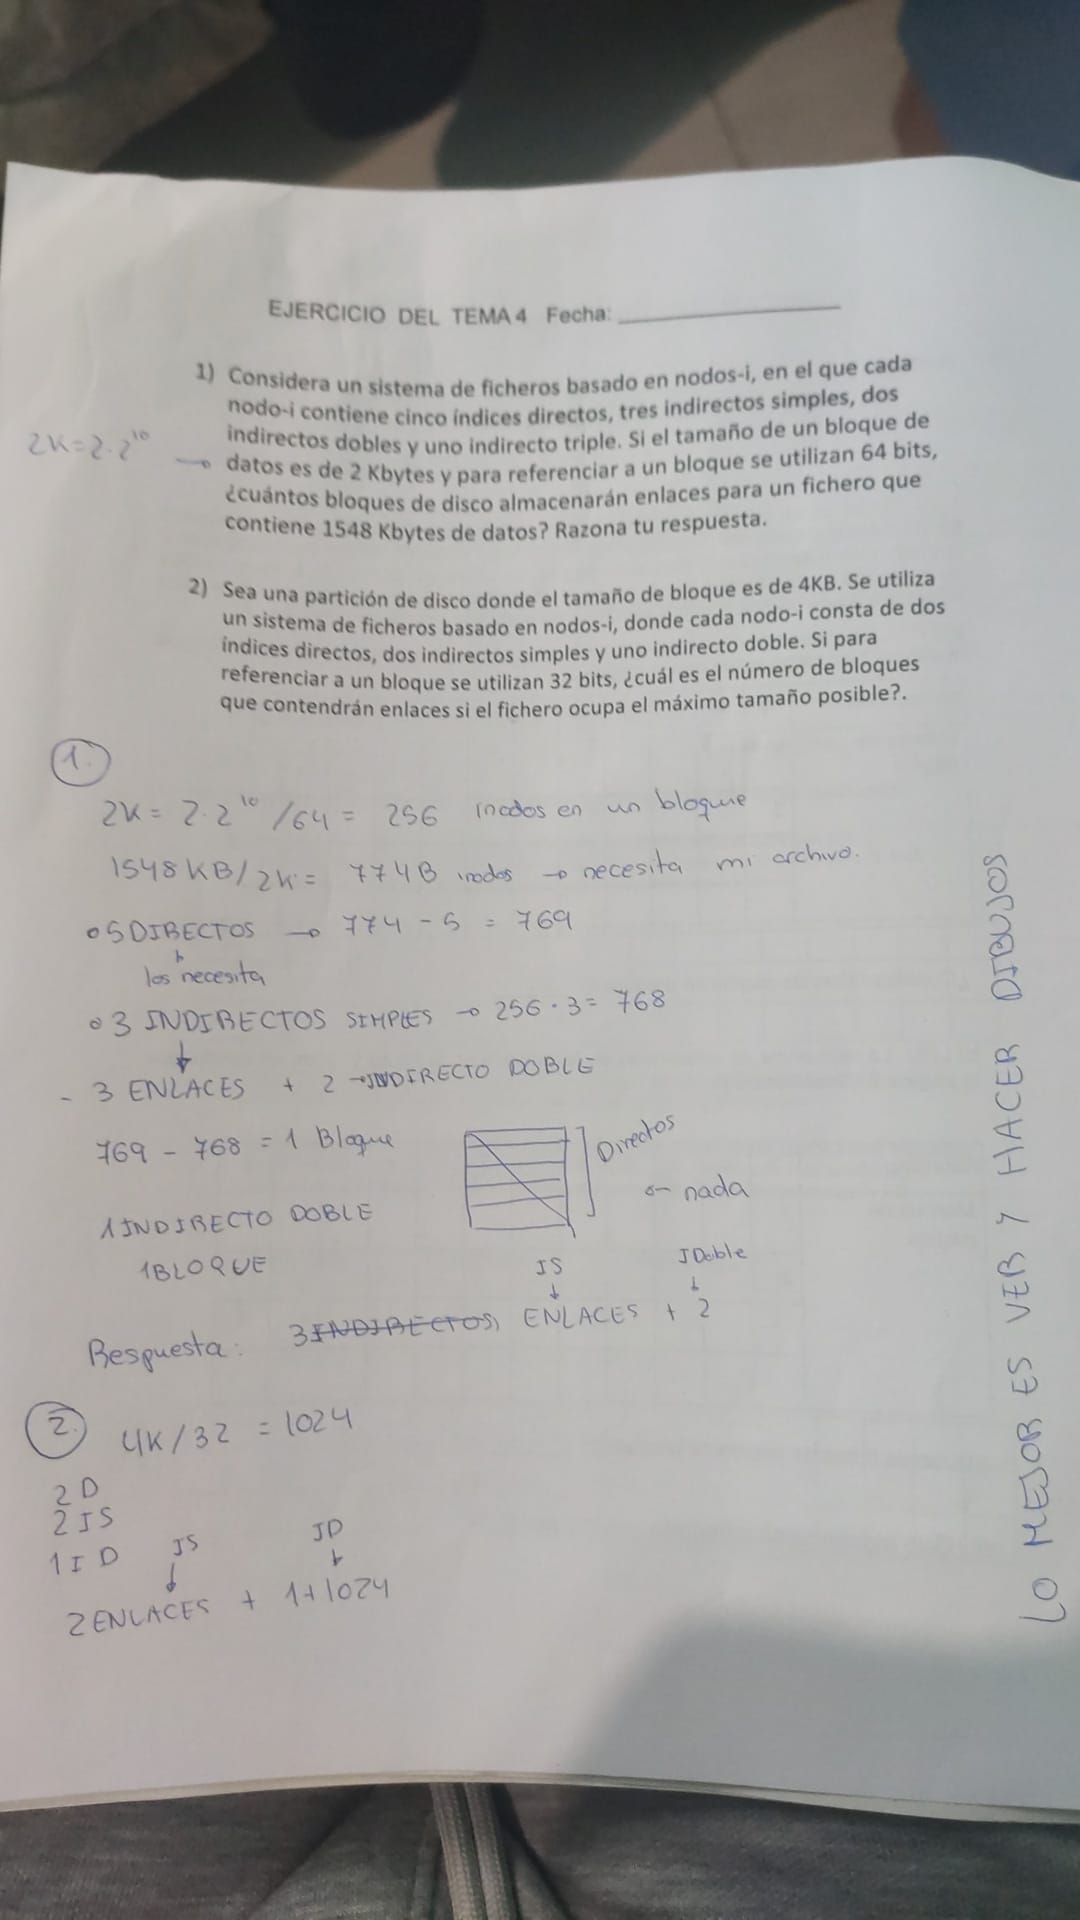 EJERCICIO DEL TEMA 4 Fecha:
1) Considera un sistema de ficheros basado en nodos-i, en el que cada
nodo-i contiene cinco índices directos, tres indirectos simples, dos
indirectos dobles y uno indirecto triple. Si el tamaño de un bloque de
datos es de 2 Kbytes y para referenciar a un bloque se utilizan 64 bits,
¿cuántos bloques de disco almacenarán enlaces para un fichero que
contiene 1548 Kbytes de datos? Razona tu respuesta.
2K=2·2¹⁰ →
2) Sea una partición de disco donde el tamaño de bloque es de 4KB. Se utiliza
un sistema de ficheros basado en nodos-i, donde cada nodo-i consta de dos
índices directos, dos indirectos simples y uno indirecto doble. Si para
referenciar a un bloque se utilizan 32 bits, ¿cuál es el número de bloques
que contendrán enlaces si el fichero ocupa el máximo tamaño posible?.
1.
2K = 2·2¹⁰/64 = 256 inodos en un bloque
1548 KB/2K = 774B inodos → necesita mi archivo.
5 DIRECTOS → 774 - 5 = 769
los necesita
3 INDIRECTOS SIMPLES → 256·3 = 768
↓
- 3 ENLACES + 2 → INDIRECTO DOBLE
769 - 768 = 1 Bloque
Directos
← nada
1 INDIRECTO DOBLE
1 BLOQUE
IS
↓
I Doble
↓
Respuesta: 3 INDIRECTOS, ENLACES + 2
2. 4K/32 = 1024
2 D
2 IS
1 I D
IS
↓
ID
↓
2 ENLACES + 1+1024
LO MEJOR ES VER Y HACER DIBUJOS